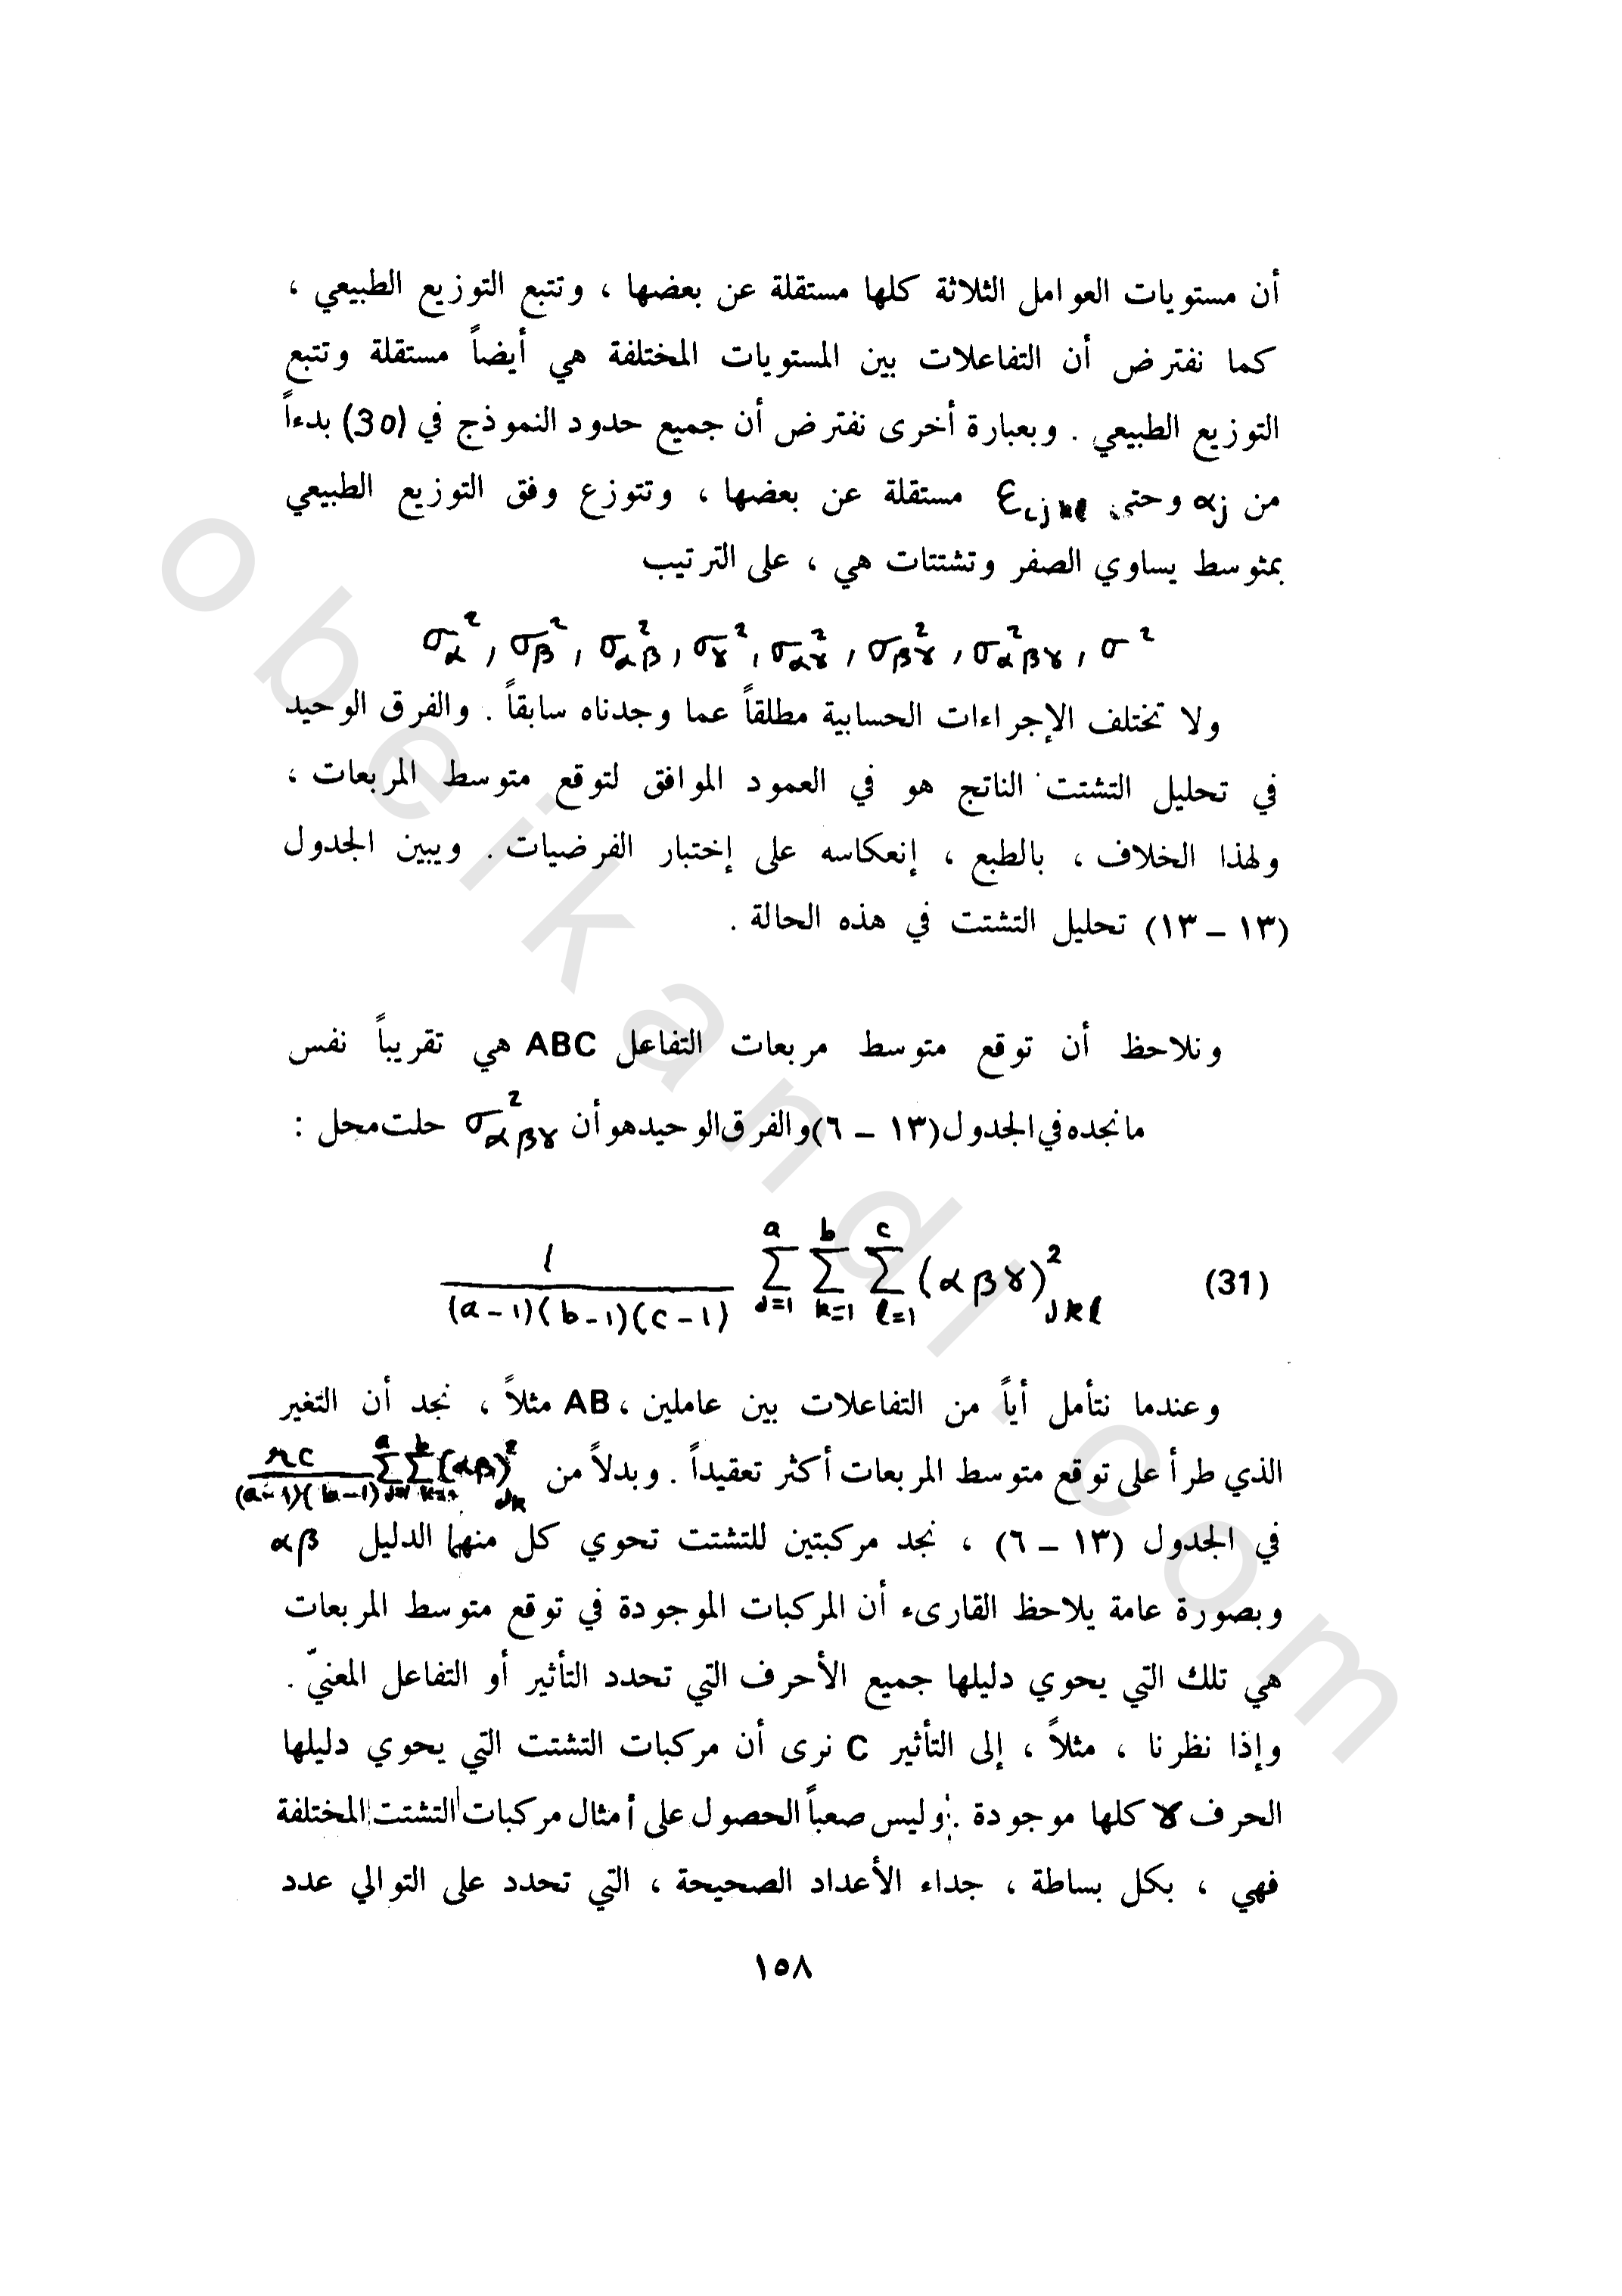 أن مستويات العوامل الثلاثة كلها مستقلة عن بعضها ، وتتبع التوزيع الطبيعي ،
كما نفترض أن التفاعلات بين المستويات المختلفة هي أيضاً مستقلة وتتبع
التوزيع الطبيعي . وبعبارة أخرى نفترض أن جميع حدود النموذج في (30) بدءاً
من αj وحتى εijkl مستقلة عن بعضها ، وتتوزع وفق التوزيع الطبيعي
بمتوسط يساوي الصفر وتشتتات هي ، على الترتيب
σ_α^2 , σ_β^2 , σ_αβ^2 , σ_γ^2 , σ_αγ^2 , σ_βγ^2 , σ_αβγ^2 , σ^2
ولا تختلف الإجراءات الحسابية مطلقاً عما وجدناه سابقاً . والفرق الوحيد
في تحليل التشتت الناتج هو في العمود الموافق لتوقع متوسط المربعات ،
ولهذا الخلاف ، بالطبع ، إنعكاسه على إختبار الفرضيات . ويبين الجدول
(١٣ – ١٣) تحليل التشتت في هذه الحالة .
ونلاحظ أن توقع متوسط مربعات التفاعل ABC هي تقريباً نفس
ما نجده في الجدول (١٣ – ٦) والفرق الوحيد هو أن σ_αβγ^2 حلت محل :
1/((a-1)(b-1)(c-1)) Σ_{j=1}^{a} Σ_{k=1}^{b} Σ_{l=1}^{c} (αβγ)^2_{jkl} (31)
وعندما نتأمل أياً من التفاعلات بين عاملين ، AB مثلاً ، نجد أن التغير
الذي طرأ على توقع متوسط المربعات أكثر تعقيداً . وبدلاً من rc/((a-1)(b-1)) Σ_{j=1}^{a} Σ_{k=1}^{b} (αβ)^2_{jk}
في الجدول (١٣ – ٦) ، نجد مركبتين للتشتت تحوي كل منهما الدليل αβ
وبصورة عامة يلاحظ القارىء أن المركبات الموجودة في توقع متوسط المربعات
هي تلك التي يحوي دليلها جميع الأحرف التي تحدد التأثير أو التفاعل المعنيّ .
وإذا نظرنا ، مثلاً ، إلى التأثير C نرى أن مركبات التشتت التي يحوي دليلها
الحرف γ كلها موجودة . وليس صعباً الحصول على أمثال مركبات التشتت المختلفة
فهي ، بكل بساطة ، جداء الأعداد الصحيحة ، التي تحدد على التوالي عدد
١٥٨
obeikandl.com